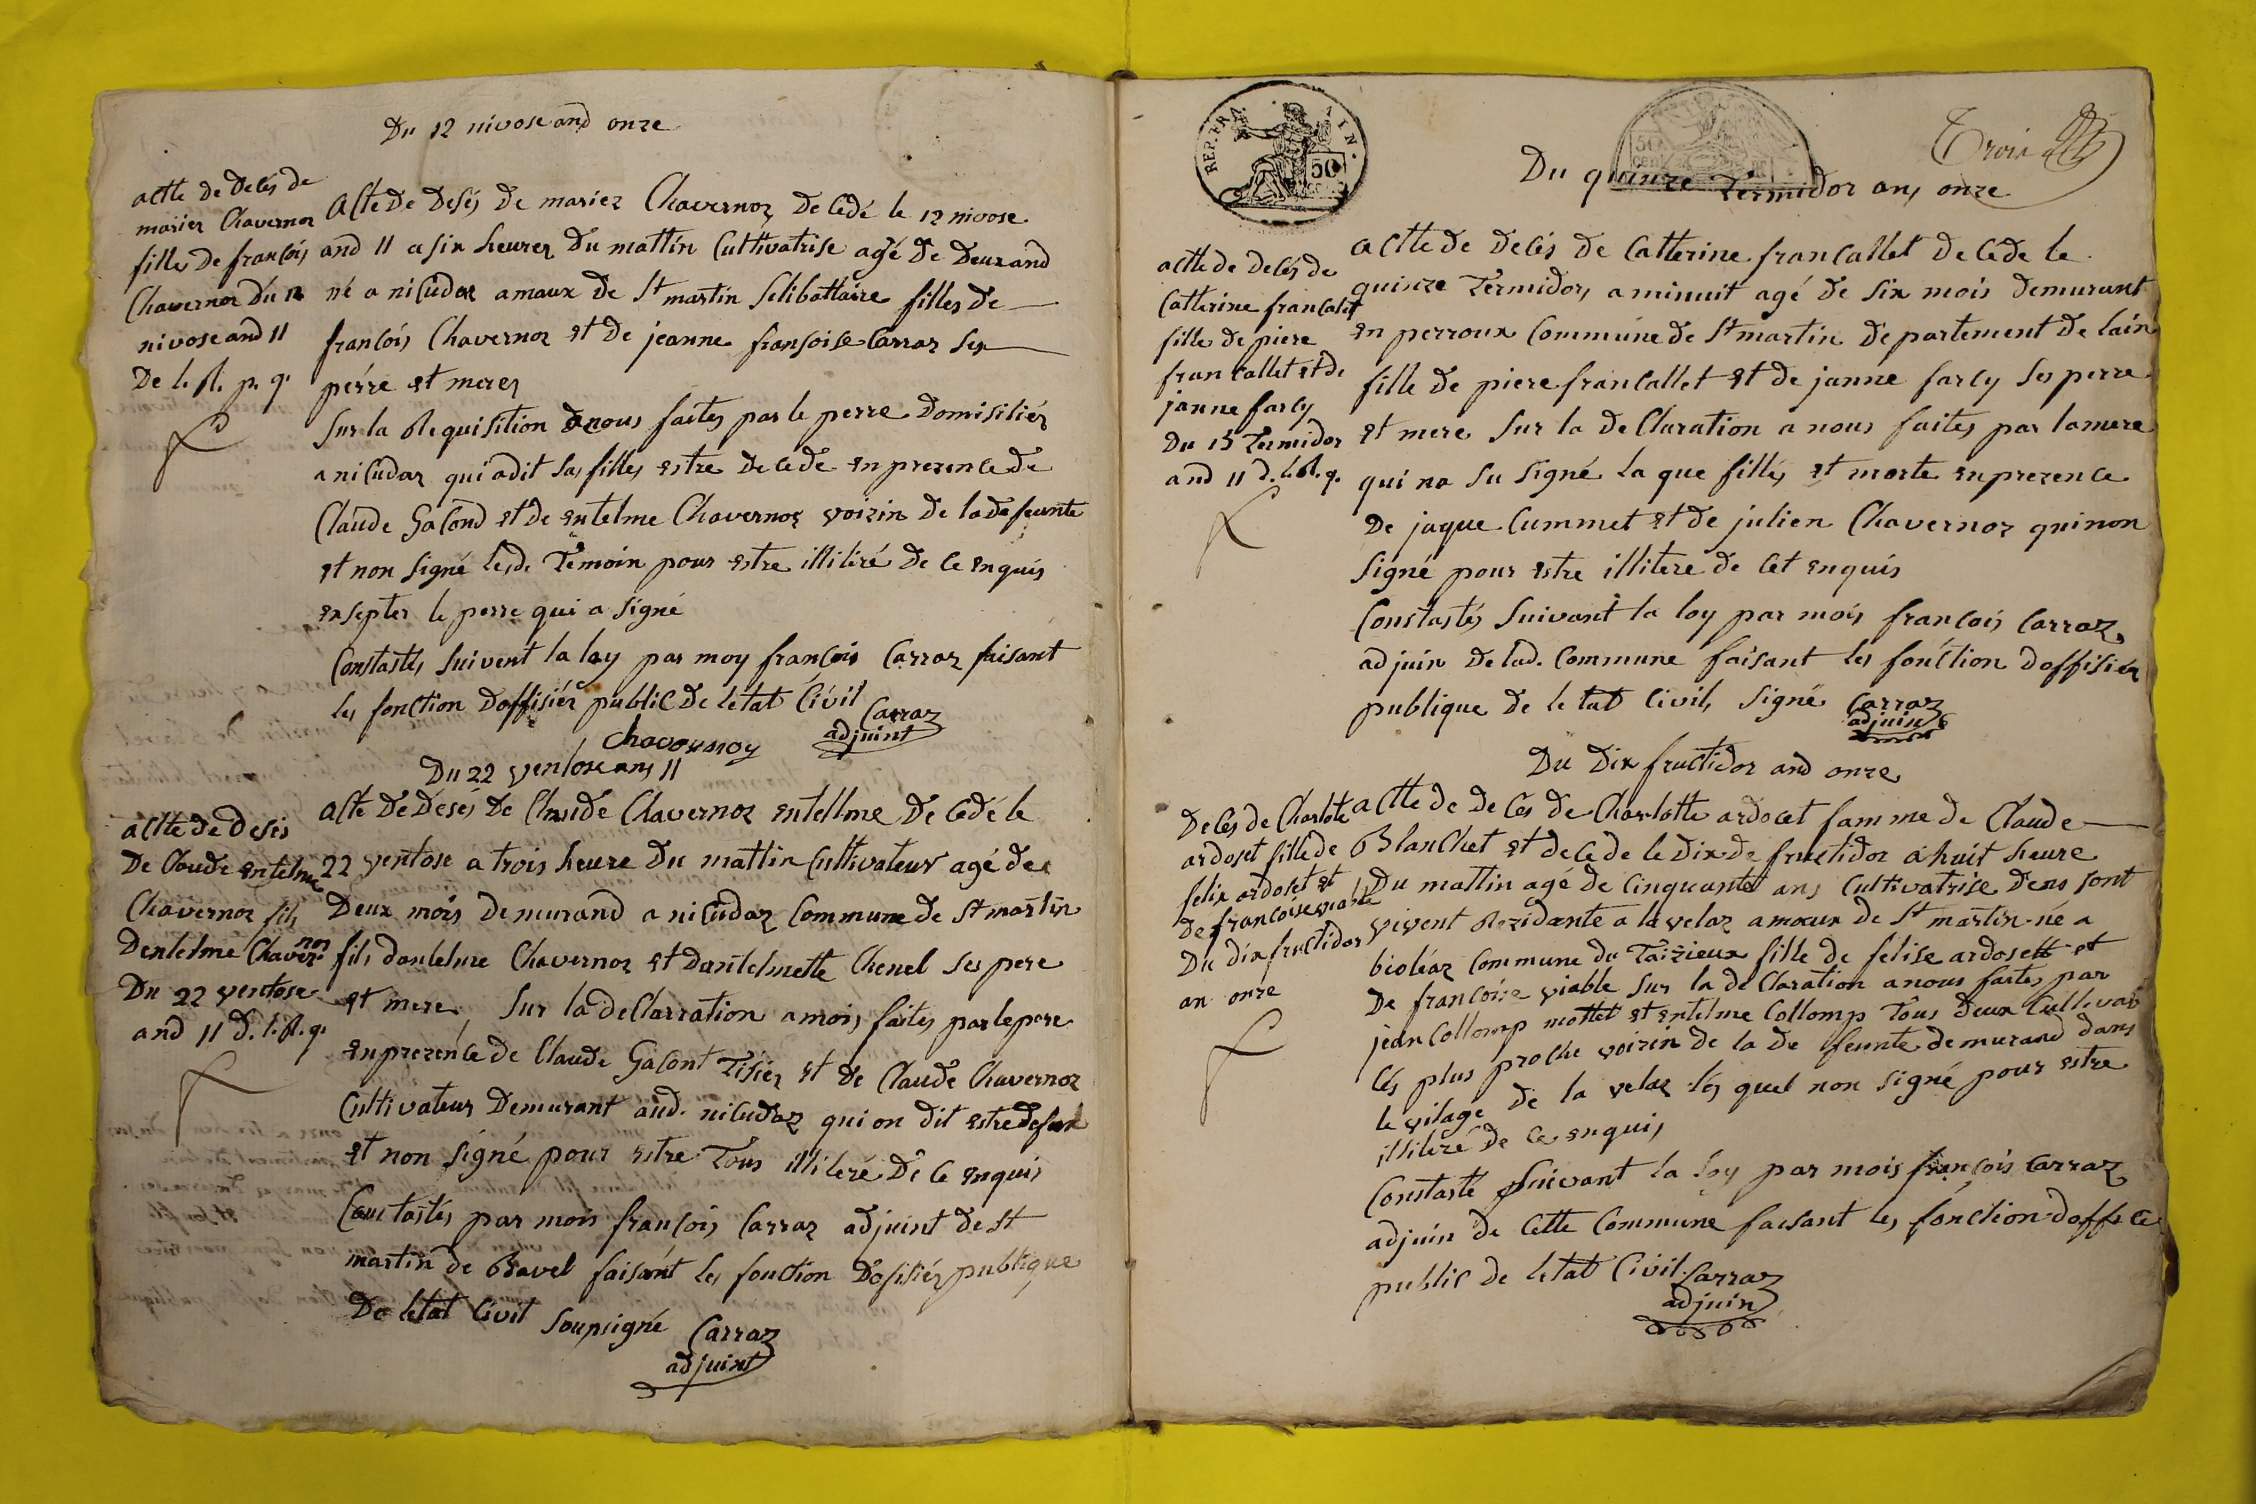 Du 12 nivose and onze
actte de decés de
mariez Chavernoz
filles de françois
Chavernoz du 12
nivose and 11
De l. R. p. q.
Acte de desés de mariez Chavernoz decedé le 12 nivose
and 11 a six heurez du mattin Culttivatrise agé de deux and
né a nicudaz amaux de St martin Selibattaire filles de
françois Chavernoz et de jeanne fransoise Carraz ses
pérre et merez
Sur la Requisition a nous faites par le perre domisiliéz
a nicudaz qui a dit sas filles estre decede en prezence de
Claude Gacond et de entelme Chavernoz voizin de la defeunte
et non signé lesd. Temoin pour estre illitéré de ce enquis
exsepter le perre qui a signé
Constastés suivent la loy par moy françois Carraz faisant
les fonction doffisiéz public de létat Civil
Carraz
adjuint
Chavournoy
Du 22 ventose ans 11
actte de desés
De Claude entelme
Chavernoz fils
Dentelme Chavernoz
Du 22 ventose
and 11 d. l. R. q.
acte de désés de Claude Chavernoz entellme decedé le
22 ventose a trois heure du mattin Culttivateur agé de
Deux mois demurand a nicudaz Commune de St martin
fils dantelme Chavernoz et dantelmette Chenel ses pere
et mere Sur la decllarration a mois faites par le pere
en prezence de Claude Gacont Tisiez et de Claude Chavernoz
Cultivateur Demurant aud. nicudaz qui on dit estre defunt
et non signé pour estre Tous illiteré de ce enquis
Constastés par mois françois Carraz adjuint de St
martin de Bavel faisant les fonction dofisiéz publique
De letat Civil Soupsigné
Carraz
adjuint
REP. FRA.
AIN.
50
50
cen
Trois
Du quinze Termidor ans onze
actte de decés de
Catterine francallet
fille de piere
francallet et de
janne farcy
Du 15 Termidor
and 11 d. l. R. q.
actte de decés de Catterine francallet decede le
quinze Termidor, a minuit agé de six mois demurant
en perroux Commune de St martin département de lain
fille de piere francallet et de janne farcy ses perre
et mere sur la decluration a nous faites par la mere
qui na su signé la que fillés et morte en prezence
De jaque Cummet et de julien Chavernoz qui non
signé pour estre illitere de cet enquis
Constastés suivant la loy par mois françois Carraz
adjuin de lad. Commune faisant les fonction doffisiér
publique de le tat Civil, signé
Carraz
adjuin
Du Dix fructidor and onze
Decés de Charlote
ardoset fille de
felix ardoset et
de françoise viable
Du dix fructidor
an onze
actte de deces de Charlotte ardocet famme de Claude
Blanchet et decede le dix de fructidor a huit heure
Du mattin agé de Cinquante ans Cultivatrise dens sont
vivent Rezidante a la velaz amoux de St martin né a
bioléaz Commune du Taizieux fille de felise ardosett et
De francoise viable sur la declaration a nous faites par
jean Collomp mottet et entelme Collomp Tous deux Cullevat
Cés plus proche voizin de la defeunte demurand dans
le vilage de la velaz lés quel non signé pour estre
illiteré de ce enquis
Constasté suivant la loy par mois françois Carraz
adjuin de Cette Commune faisant les fonction doffice
public de letat Civil
Carraz
adjuin